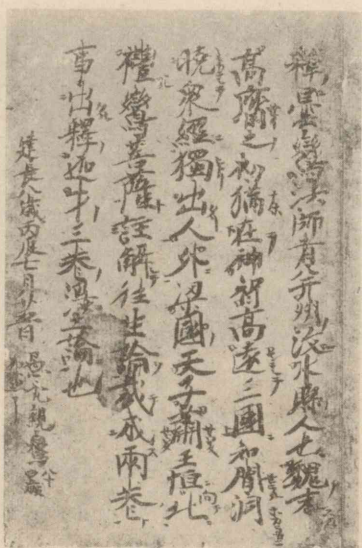 釋曇鸞法師者并州汶水縣人也魏末
高齊之初猶在神智高遠三國知聞洞
曉衆經獨出人外梁國天子蕭王恒北
禮鸞菩薩註解往生論裁成兩卷
事出釋迦才三卷浄土論也
建長八歳丙辰七月廿五日
愚禿親鸞八十四歳